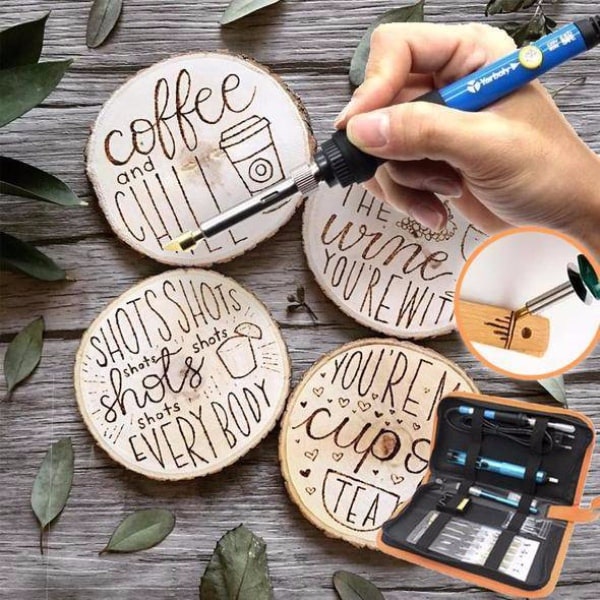 coffee
and
CHILL
THE
wine
YOU'RE WIT
SHOTS SHOTS
shots
shots
shots
shots
EVERYBODY
YOU'RE M
cup o
TEA